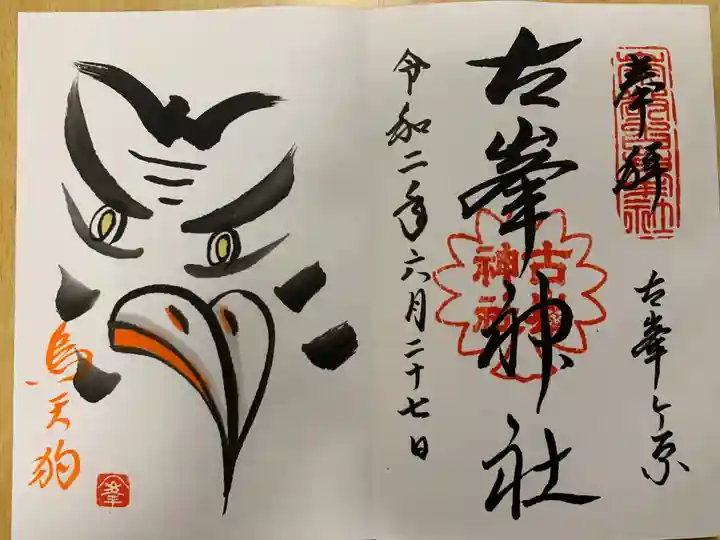 奉拝
古峯ヶ原
古峯神社
古峯
神社
令和二年六月二十七日
烏天狗
峯